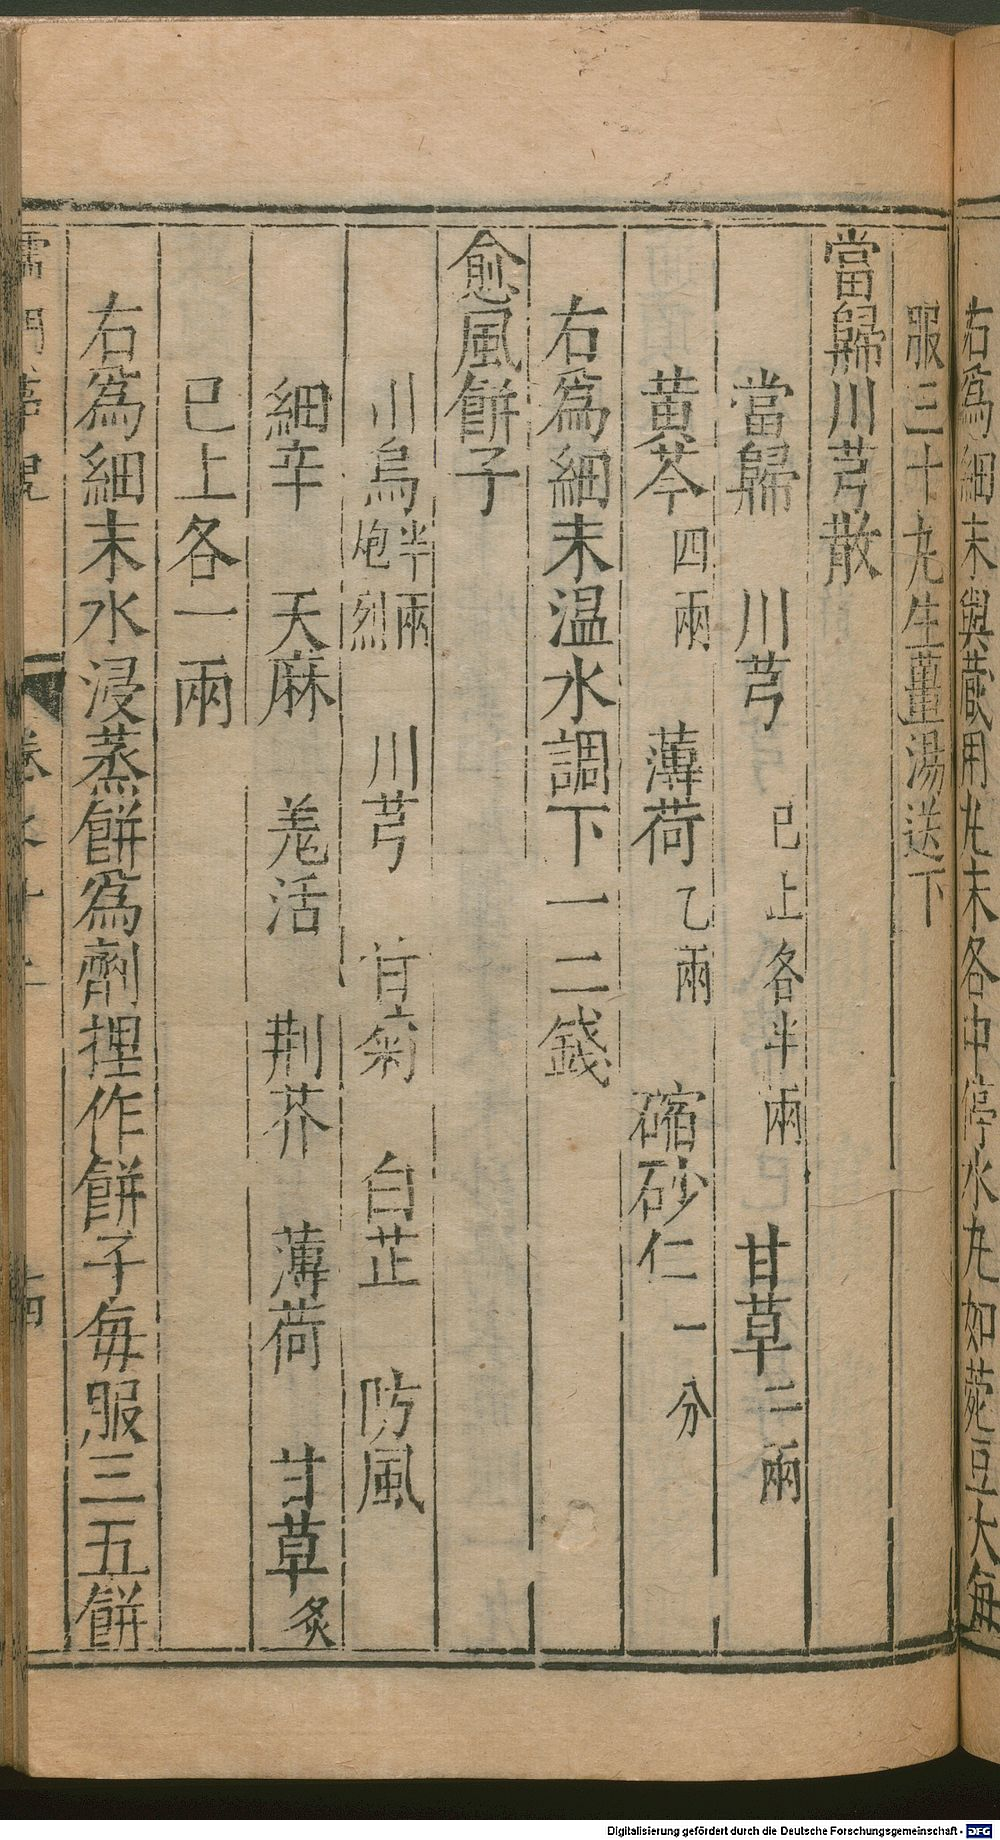 右爲細末與藏用丸末各中停水丸如菉豆大每
服三十丸生薑湯送下
當歸川芎散
當歸 川芎 已上各半兩 甘草二兩
黄芩四兩 薄荷乙兩 縮砂仁一分
右爲細末温水調下一二錢
愈風餅子
川烏半兩炮烈 川芎 甘菊 白芷 防風
細辛 天麻 羗活 荆芥 薄荷 甘草炙
已上各一兩
右爲細末水浸蒸餅爲劑捏作餅子每服三五餅
儒門 卷 十二
Digitalisierung gefördert durch die Deutsche Forschungsgemeinschaft - DFG